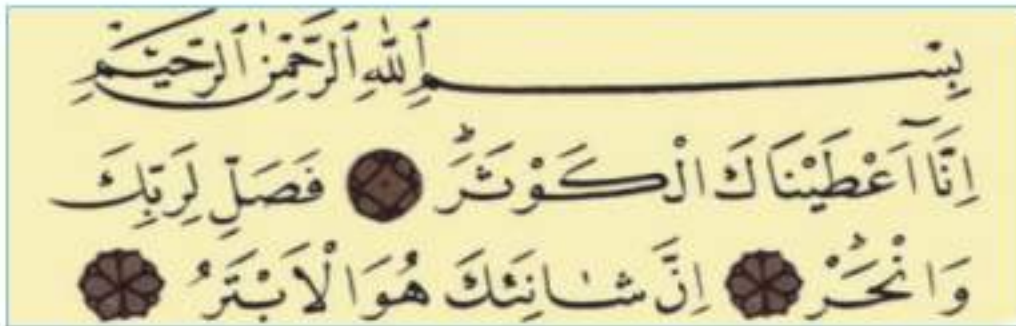 بِسْمِ اللّٰهِ الرَّحْمٰنِ الرَّحٖيمِ
اِنَّٓا اَعْطَيْنَاكَ الْكَوْثَرَ فَصَلِّ لِرَبِّكَ
وَانْحَرْ اِنَّ شَانِئَكَ هُوَ الْاَبْتَرُ